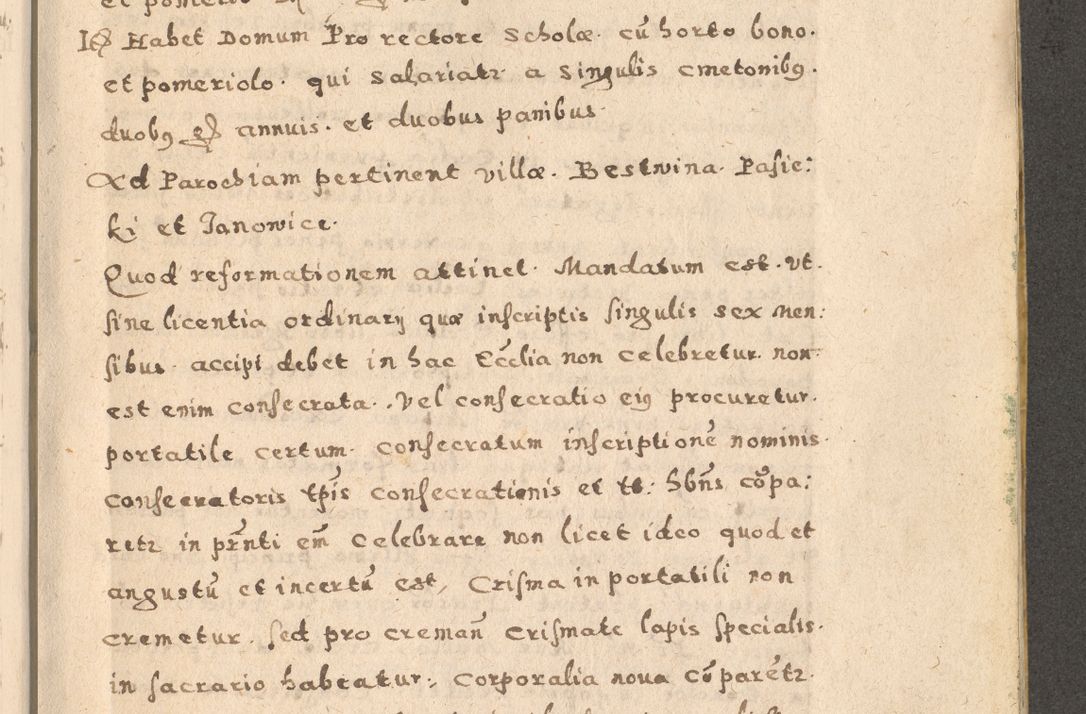 Habet Domum Pro rectore Scholæ. cũ horto bono.
et pomeriolo. qui Salariatr a singulis cmetonibꝰ.
duobꝰ annuis. et duobus panibus
Ad Parochiam pertinent villæ. Bestwina. Pasie:
ki et Janowice.
Quod reformationem attinet. Mandatum est. vt.
sine licentia ordinarij quæ inscriptis singulis sex men:
sibus. accipi debet in hac Eccľia non celebretur. non
est enim consecrata. Vel consecratio eiꝰ procuretur.
portatile certum. consecratum inscriptionẽ nominis.
consecratoris tp̃is consecrationis et hñs cõpa:
retr in pr̃nti em̃ celebrare non licet ideo quod et
angustũ et incertũ est, Crisma in portatili non
cremetur. sed pro creman̄ crismate lapis specialis.
in sacrario habeatur. Corporalia noua cõparẽtr.